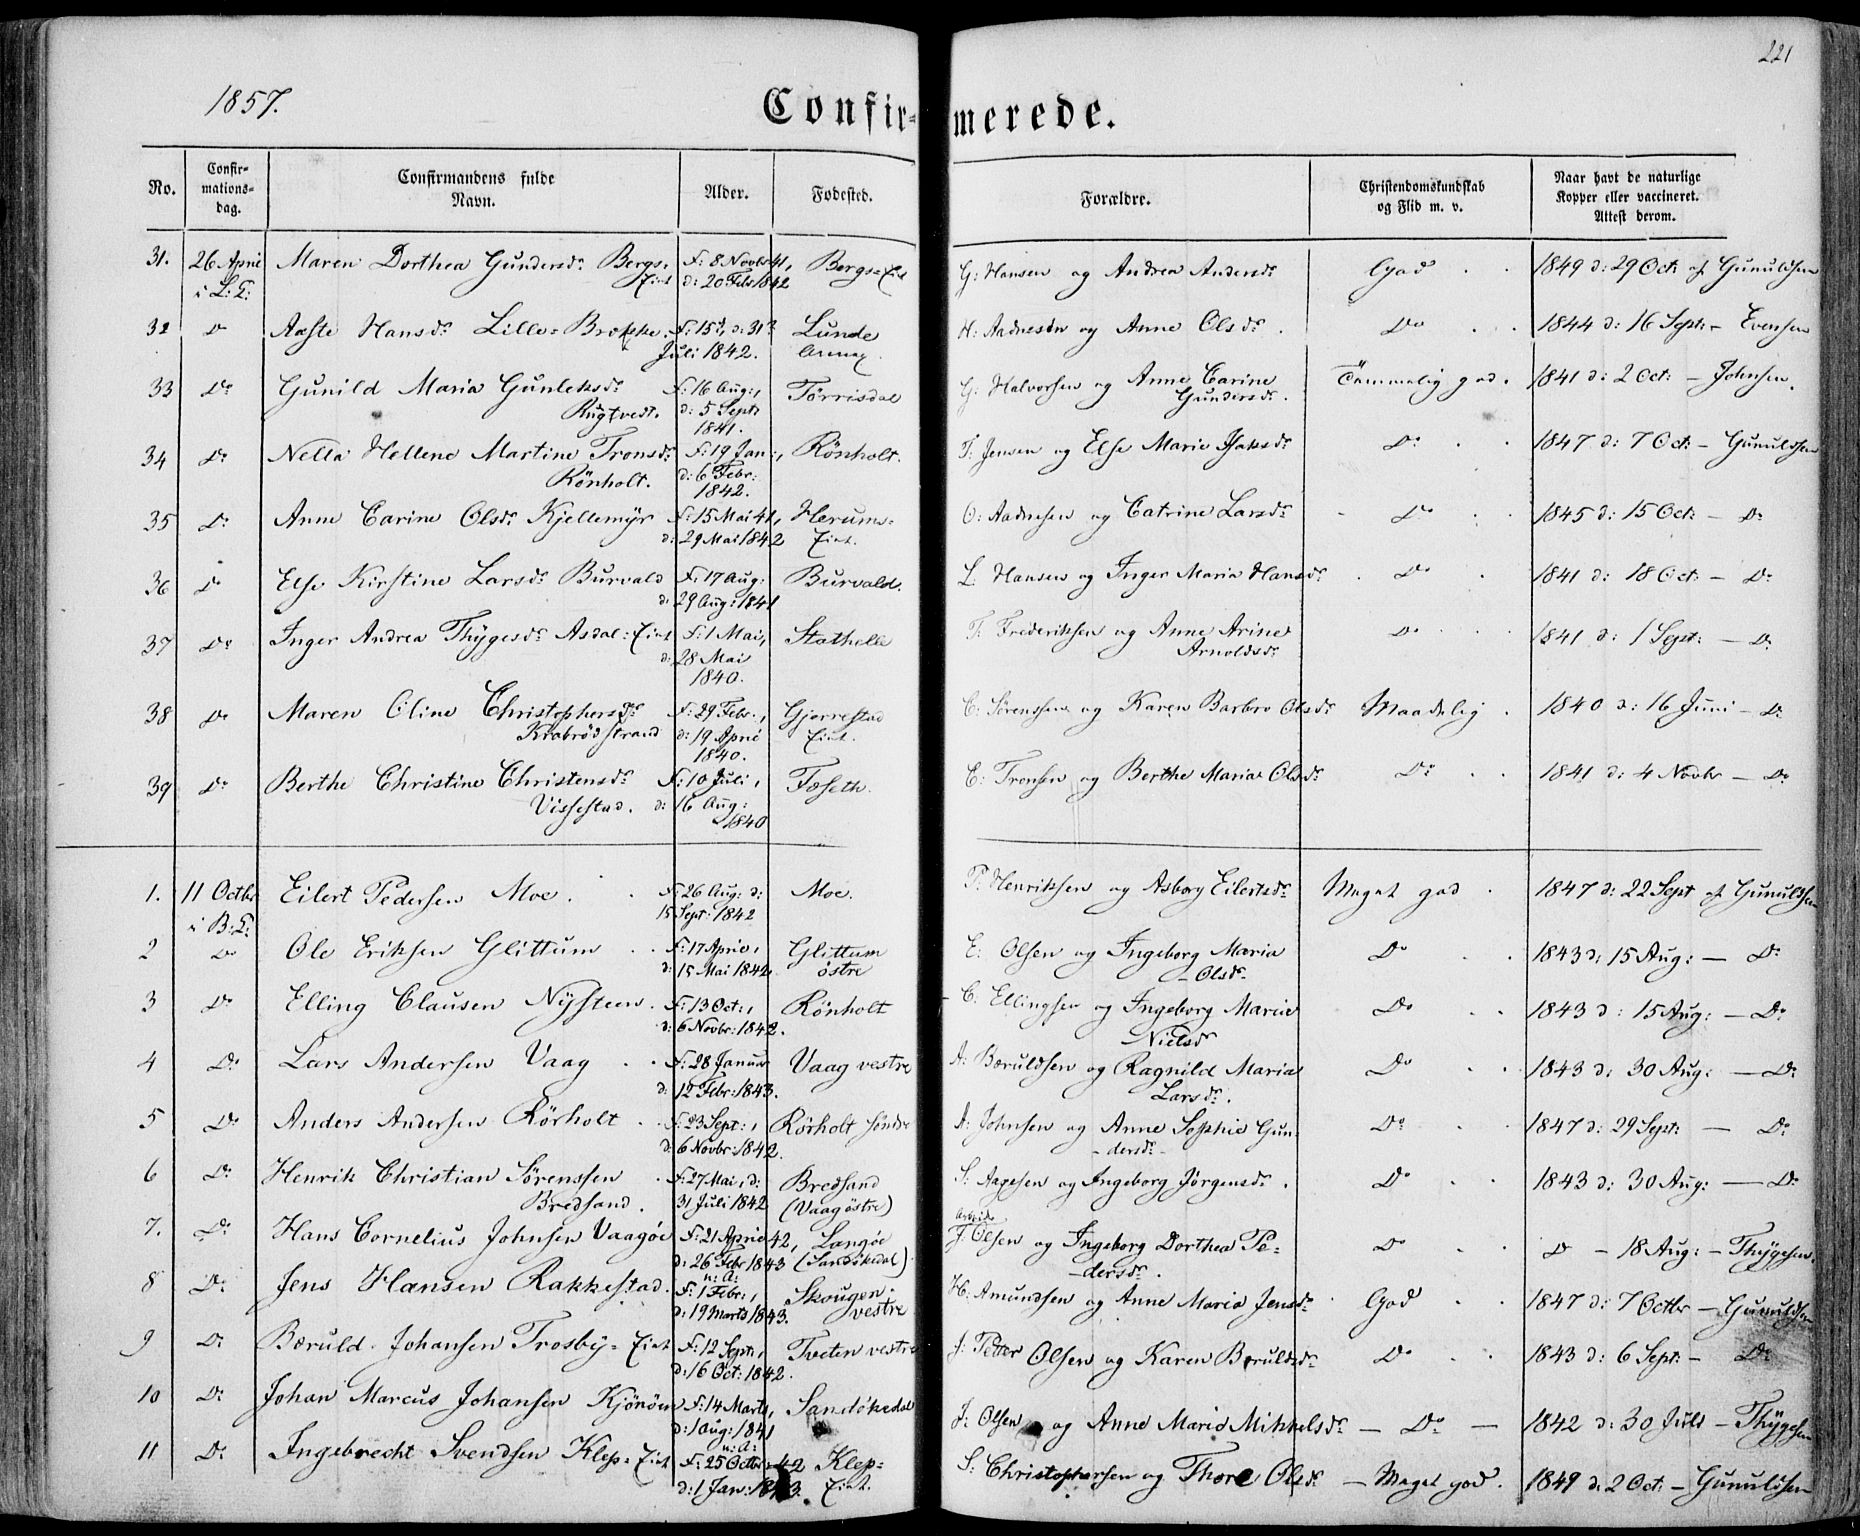 221
1857.
Confir-
merede.
No.
Confir-
mations-
dag.
Confirmandens fulde
Navn.
Alder.
Fødested.
Forældre.
Christendomskundskab
og Flid m. v.
Naar havt de naturlige
Kopper eller vaccineret.
Attest derom.
31. 26 April Maren Dorthea Gundersdr. Bergs- F: 8 Novbr 41, Bergs-Eiet G: Hansen og Andrea Andersdr. God 1849 d: 29 Oct: af Gunuldsen
i L: Eiet d: 20 Febr 1842
32 Do Aaste Hansdr. Lille-Brekke. F: 15d, d: 31te Lunde H: Aadnesøn og Anne Olsdr. Do 1844 d: 16 Sept: - Evensen
Juli 1842. Annex.
33 Do Gunild Maria Gunleksdr. F: 16 Aug:, Tørrisdal G: Halvorsen og Anne Carine Temmelig god. 1841 d: 2 Oct: - Johnsen.
Rugtvedt. d: 5 Septr Gundersdr.
1841.
34 Do Nella Hellene Martine Tronsdr. F: 19 Jan:, Rönholt. T: Jensen og Else Marie Isaksdr. Do 1847 d: 7 Oct: - Gunuldsen
Rönholt. d: 6 Febr:
1842.
35 Do Anne Carine Olsdr. Kjellemyr F: 15 Mai 41, Herums- O: Aadnesen og Catrine Larsdr. Do 1845 d: 15 Oct: - Do
d: 29 Mai 1842 Eiet.
36 Do Else Kirstine Larsdr. Burvald F: 17 Aug: Burvald. L: Hansen og Inger Maria Hansdr. Do 1841 d: 18 Oct: - Do
d: 29 Aug: 1841
37 Do Inger Andrea Thygesdr. Asdal-Eiet F: 1 Mai, Stathelle T: Frederiksen og Anne Arine Do 1841 d: 1 Sept: - Do
d: 28 Mai Arnoldsdr.
1840.
38 Do Maren Oline Christophersdr. F: 29 Febr., Gjerrestad C: Sørensen og Karen Barbro Olsdr. Maadelig. 1840 d: 16 Juni - Do
Krabrødstrand d: 19 April Eiet.
1840.
39 Do Berthe Christine Christensdr. F: 10 Juli, Foseth. C: Tronsen og Berthe Maria Olsdr. Do 1841 d: 4 Novbr - Do
Vissestad. d: 16 Aug:
1840
1. 11 Octbr Eilert Pedersen Moe. F: 26 Aug: d: Moe. P: Henriksen og Asborg Eilertsdr. Meget god. 1847 d: 22 Sept af Gunuldsen
i B: 15 Sept: 1842
2 Do Ole Eriksen Glittum F: 17 April, Glittum E: Olsen og Ingeborg Maria Do 1843 d: 15 Aug: - Do
d: 15 Mai 1842. østre Olsdr.
3 Do Elling Clausen Nysteen. F: 13 Oct:, Rönholt C: Ellingsen og Ingeborg Maria Do 1843 d: 15 Aug: - Do
d: 6 Novbr: 1842. Nielsdr
4 Do Lars Andersen Vaag F: 28 Januar Vaag vestre A: Bæruldsen og Ragnild Maria Do 1843 d: 30 Aug: - Do
d: 12 Febr: 1843. Larsdr.
5 Do Anders Andersen Rörholt F: 23 Sept:, Rörholt søndre A: Johnsen og Anne Sophie Gun- Do 1847 d: 29 Sept: - Do
d: 6 Novbr: 1842. dersdr.
6 Do Henrik Christian Sørenssen F: 27 Mai, d: Bredsand S: Aagesen og Ingeborg Jørgensdr. Do 1843 d: 30 Aug: - Do
Bredsand. 31 Juli 1842 (Vaag östre)
7. Do Hans Cornelius Johnsen Vaagøe F: 21 April 42, Langöe J: Olsen og Ingeborg Dorthea Pe- Do Do - 18 Aug: - Thygesen.
d: 26 Febr 1843 (Sandökedal) dersdr.
n: A:
8 Do Jens Hansen Rakkestad. F: 1 Febr:, Skougen H: Amundsen og Anne Maria Jensdr. God 1847 d: 7 Octbr - Gunuldsen
d: 19 Marts 1843. vestre
9 Do Bæruld Johansen Trosby-Eiet F: 12 Sept:, Tveten vestre J: Petter Olsen og Karen Bæruldsdr. Do 1843 d: 6 Sept: - Do
d: 16 Oct: 1842.
10 Do Johan Marcus Johansen Kjönöen F: 14 Marts, Sandökedal J: Olsen og Anne Maria Mikkelsdr. - Do - 1842 d: 30 Juli - Thygesen
d: 1 Aug: 1841
n: A:
11 Do Ingebrecht Svendsen Klep-Eiet F: 25 Octbr 42 Klep- S: Christophersen og Thore Olsdr. - Meget god. 1849 d: 2 Oct: - Gunuldsen
d: 1 Jan: 1843. Eiet.